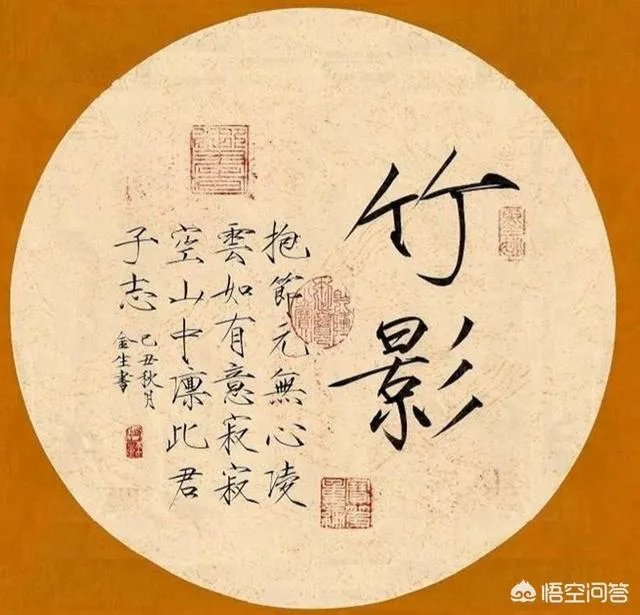 竹影
抱節元無心陵
雲如有意寂寂
空山中凛此君
子志
己丑秋月
金生書
悟空问答